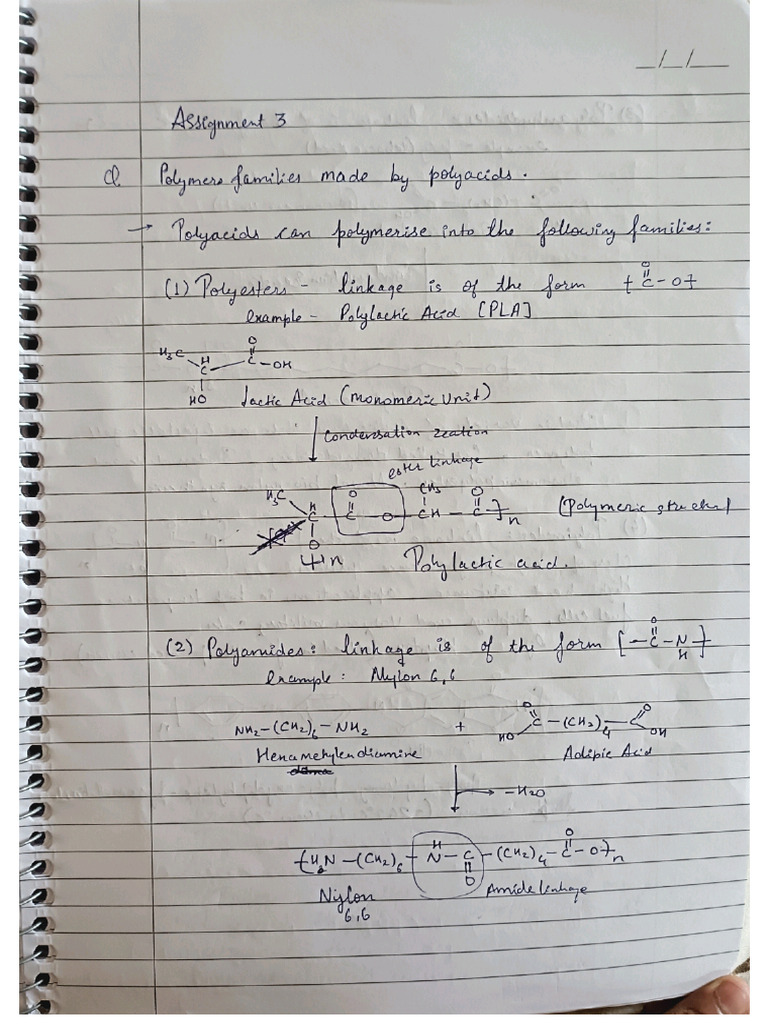 _/_/___
Assignment 3
Q Polymers families made by polyacids.
→ Polyacids can polymerise into the following families:
(1) Polyesters - linkage is of the form {C(=O)-O}
example - Polylactic Acid [PLA]
H3C H C O C-OH
HO Lactic Acid (Monomeric Unit)
Condensation
ester linkage
H3C H C O C O CH3 CH O C ]n (Polymeric
O n Polylactic acid.
(2) Polyamides: linkage is of the form [-C(=O)-N(H)-}
Example: Nylon 6,6
NH2-(CH2)6-NH2 + HO C(=O)-(CH2)4-C(=O) OH
Adipic Acid
-H2O
-(CH2)6-N(H)-C(=O)-(CH2)4-C(=O)-O}n
Nylon Amide linkage
6,6